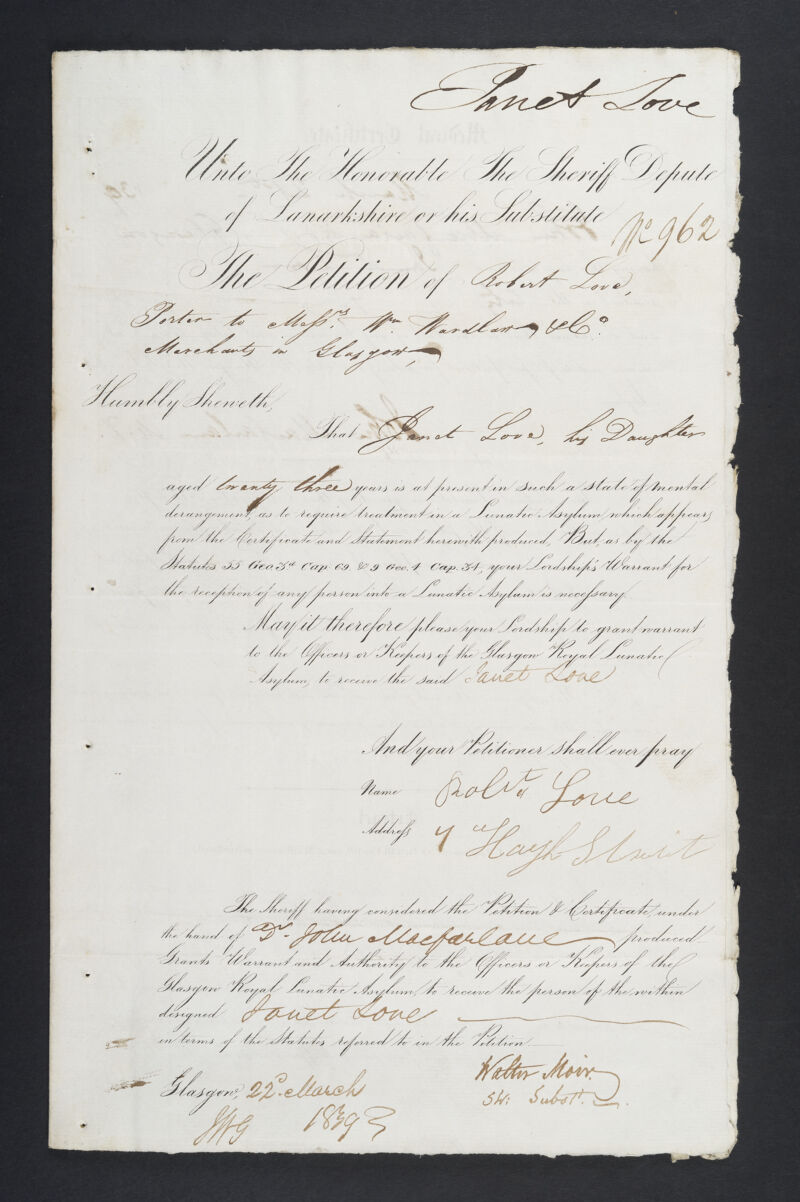 Janet Love
Unto The Honorable The Sheriff Depute
of Lanarkshire or his Substitute
No 962
The Petition of Robert Love,
Porter to Messrs. Wm Wardlaw, & Co.
Merchants in Glasgow,
Humbly Sheweth,
That Janet Love, his Daughter
aged twenty three years is at present in such a state of mental
derangement, as to require treatment in a Lunatic Asylum, which appears
from the Certificate and Statement herewith produced, But, as by the
Statutes 55 Geo. 3d Cap. 69. & 9 Geo. 4 Cap. 34, your Lordship's Warrant for
the reception of any person into a Lunatic Asylum is necessary.
May it therefore please your Lordship to grant warrant
to the Officers or Keepers of the Glasgow Royal Lunatic
Asylum, to receive the said Janet Love
And your Petitioner shall ever pray
Name Robt Love
Address 7 Haygh Street
The Sheriff having considered the Petition & Certificate under
the hand of Dr. John Macfarlane produced
Grants Warrant and Authority to the Officers or Keepers of the
Glasgow Royal Lunatic Asylum, to receive the person of the within
designed Janet Love
in terms of the Statutes referred to in the Petition
Walter Moir.
Sh: Subst.
Glasgow, 22d. March
1839